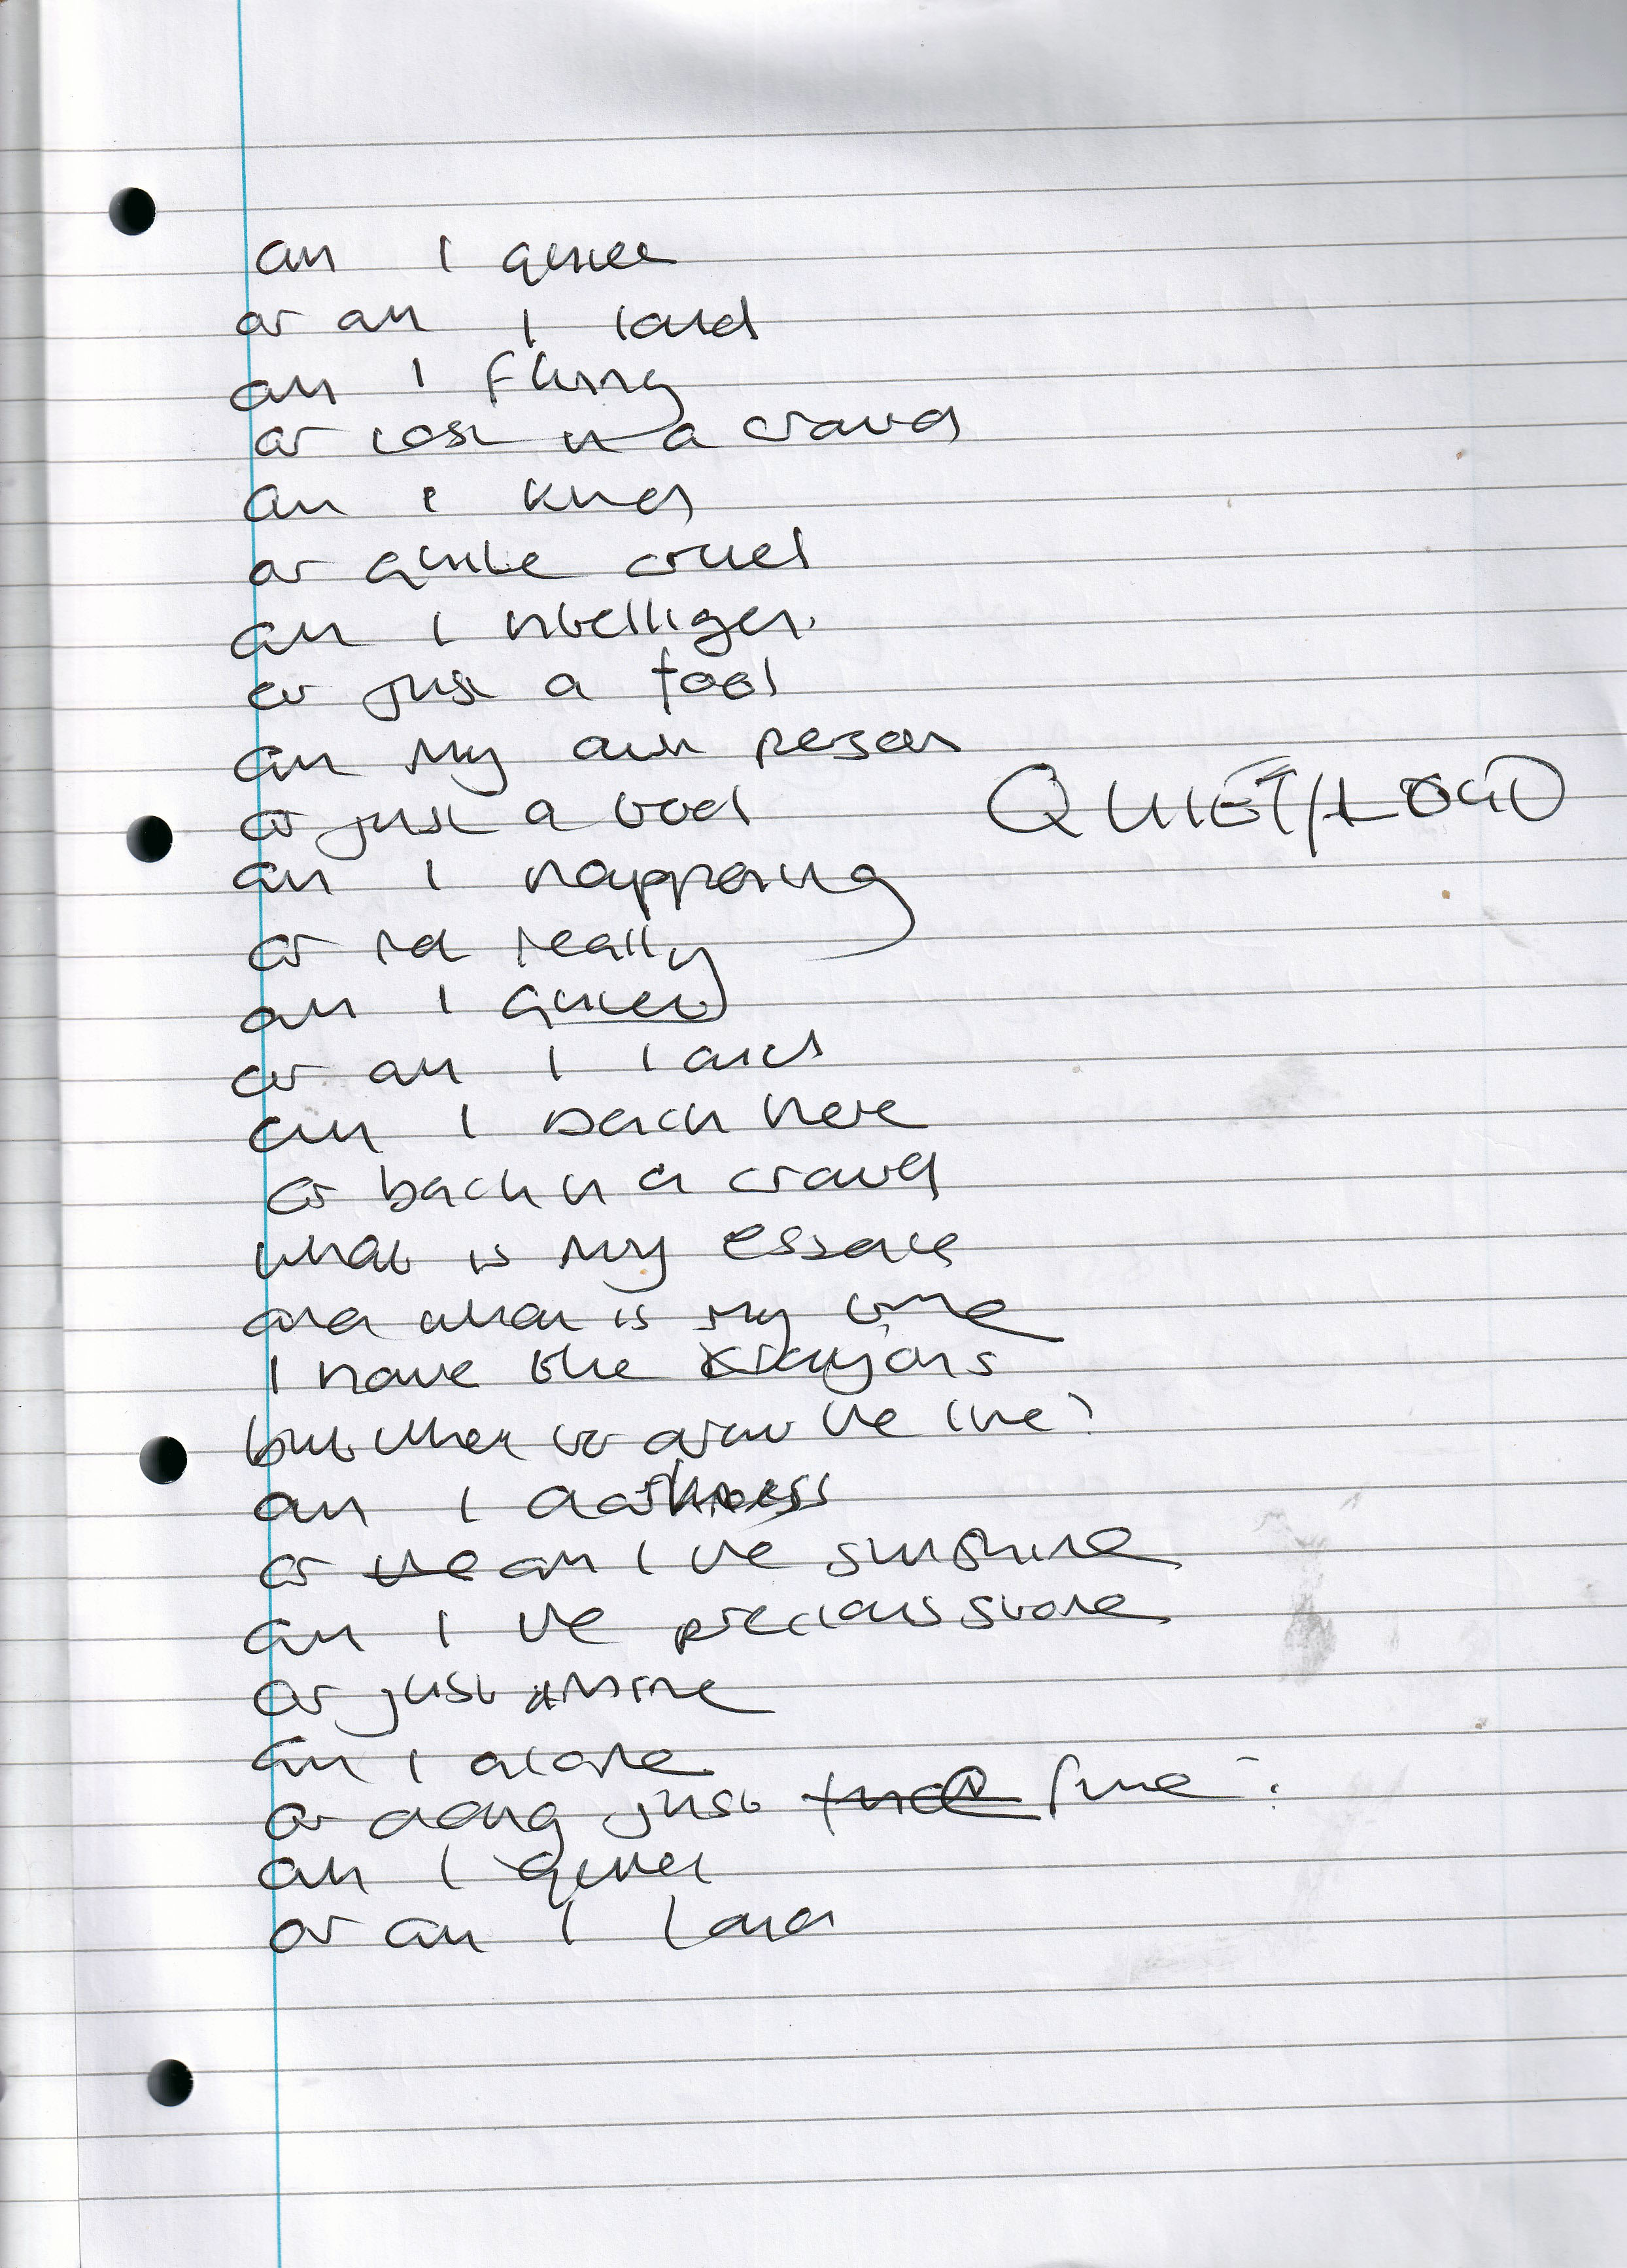 am I quiet
or am I loud
am I flying
or lost in a crowd
am I kind
or quite cruel
am I intelligent
or just a fool
am my own person
or just a tool
QUIET/LOUD
am I happening
or not really
am I quiet
or am I loud
am I back here
or back in a crowd
what is my essence
and what is my time
I have the krayons
but where to draw the line?
am I darkness
or am I the sunshine
am I the precious stone
or just mine
am I alone
or doing just fine
am I quiet
or am I loud